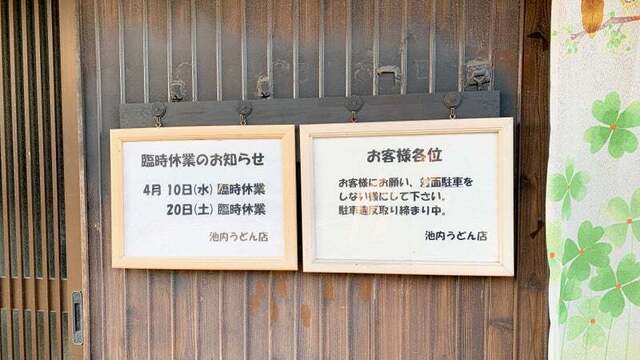 臨時休業のお知らせ
4月 10日(水) 臨時休業
20日(土) 臨時休業
池内うどん店
お客様各位
お客様にお願い、対面駐車を
しない様にして下さい。
駐車違反取り締まり中。
池内うどん店